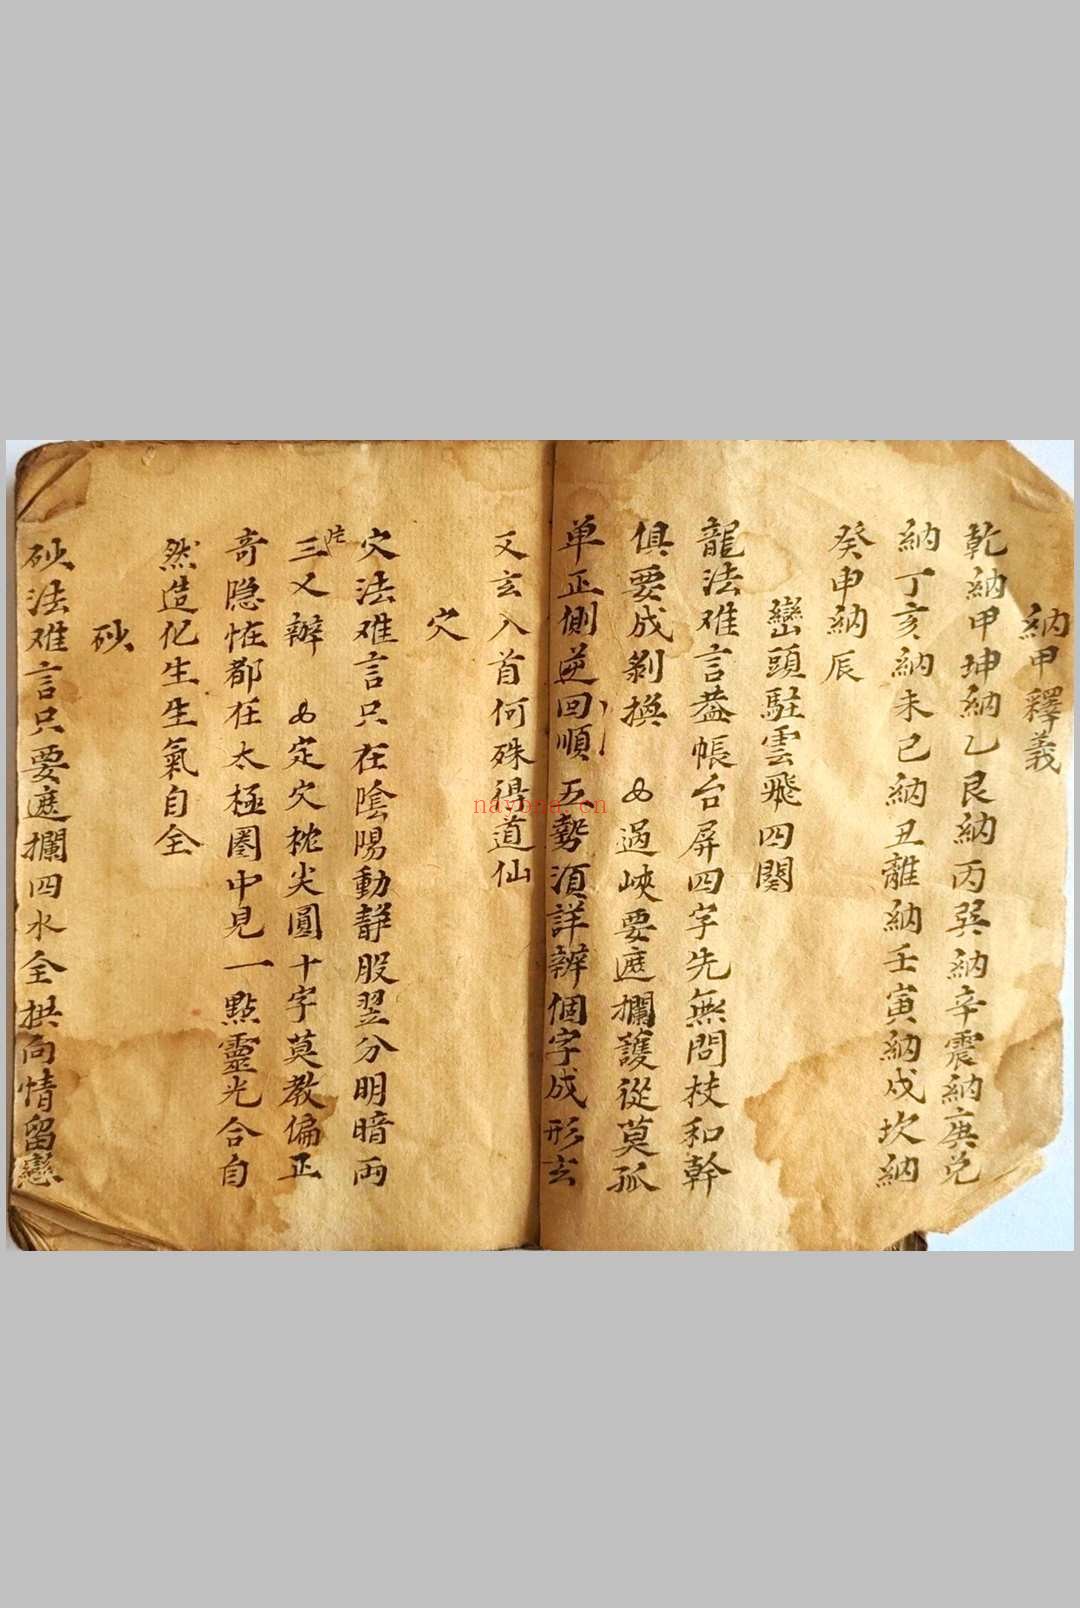 納甲釋義
乾納甲坤納乙艮納丙巽納辛震納庚兑
納丁亥納未巳納丑離納壬寅納戌坎納
癸申納辰
巒頭駐雲飛四闋
龍法难言蓋帳台屏四字先無問枝和幹
俱要成剝換 过峽要遮攔護從莫孤
单正側逆回順五勢須詳辨個字成形玄
又玄入首何殊得道仙
穴
穴法难言只在陰陽動静股翌分明暗両
三片又辦 定穴枕尖圓十字莫教偏正
竒隐怪都在太極圏中見一點靈光合自
然造化生生氣自全
砂
砂法难言只要遮攔四水全拱向情留戀
nayona.cn